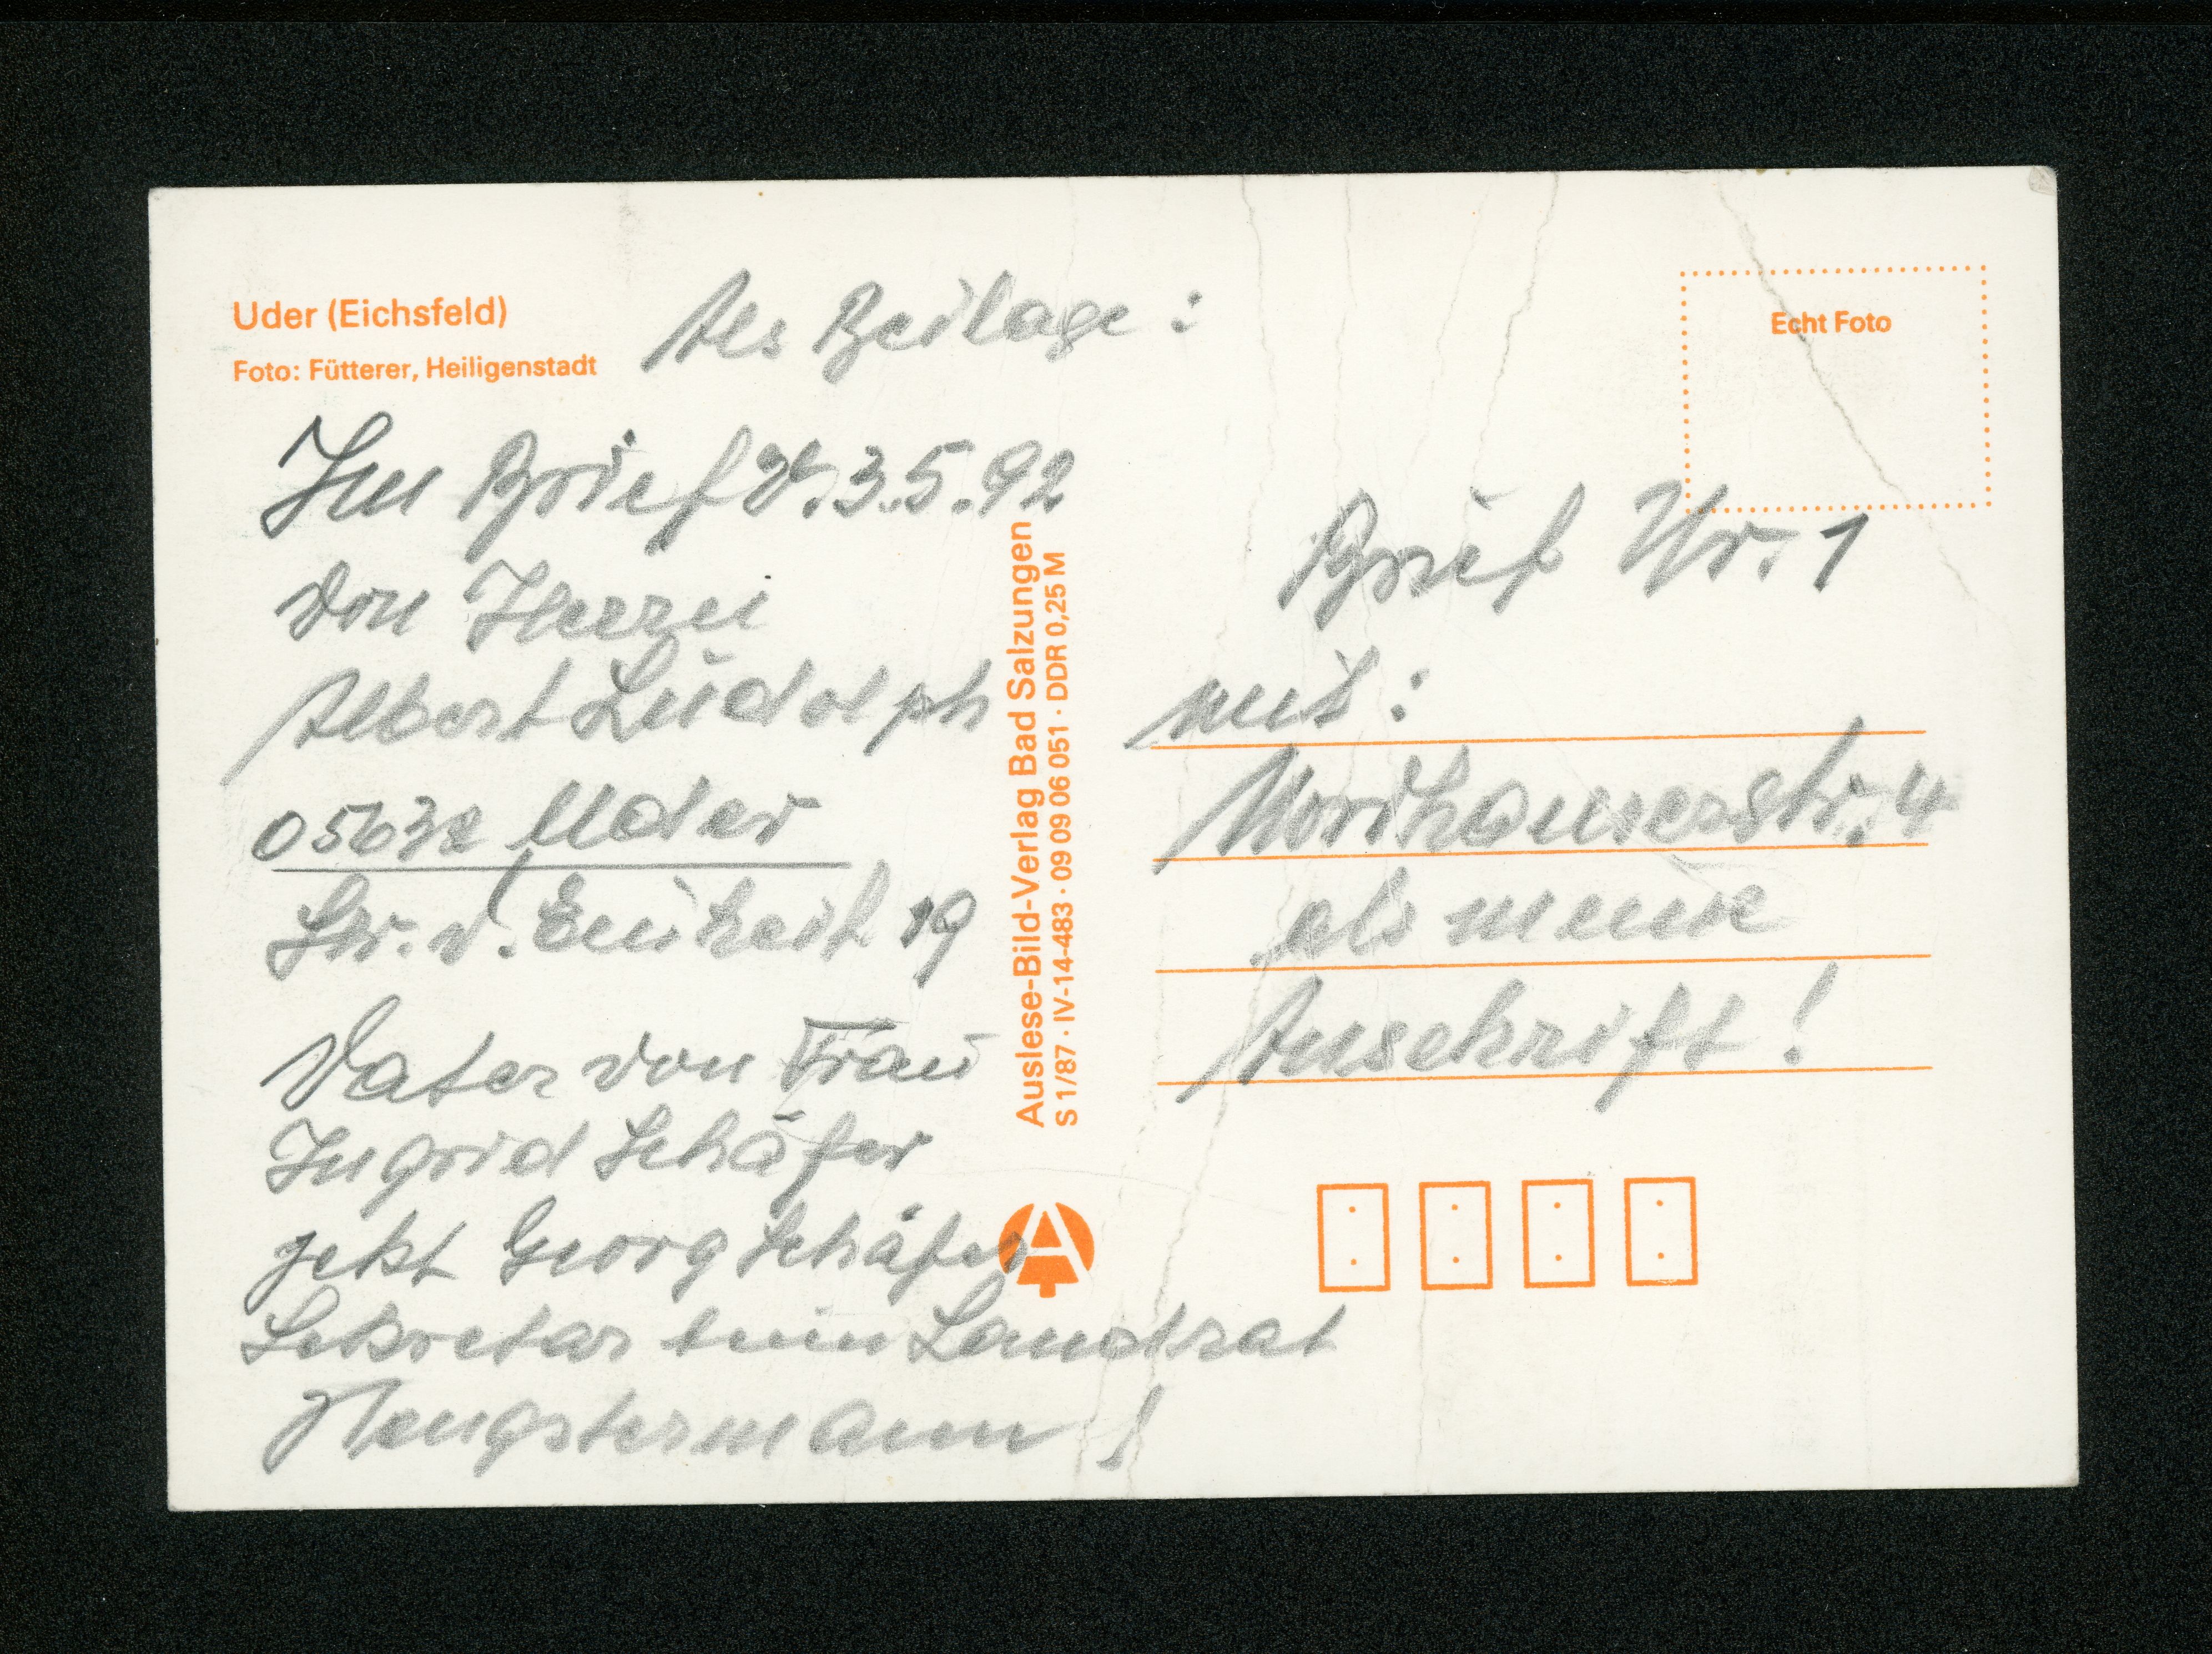 Uder (Eichsfeld)
Foto: Fütterer, Heiligenstadt
Als Beilage:
Im Brief v. 3.5.92
von Herrn
Albert Ludolph
05632 Uder
Str. d. Einheit 19
Vater von Frau
Ingrid Schäfer
jetzt Georg Schäfer
Sekretär beim Landrat
Hengstermann!
Auslese-Bild-Verlag Bad Salzungen
S 1/87 · IV-14-483 · 09 09 06 051 · DDR 0,25 M
Echt Foto
Brief Nr. 1
mit:
als meine
Anschrift!